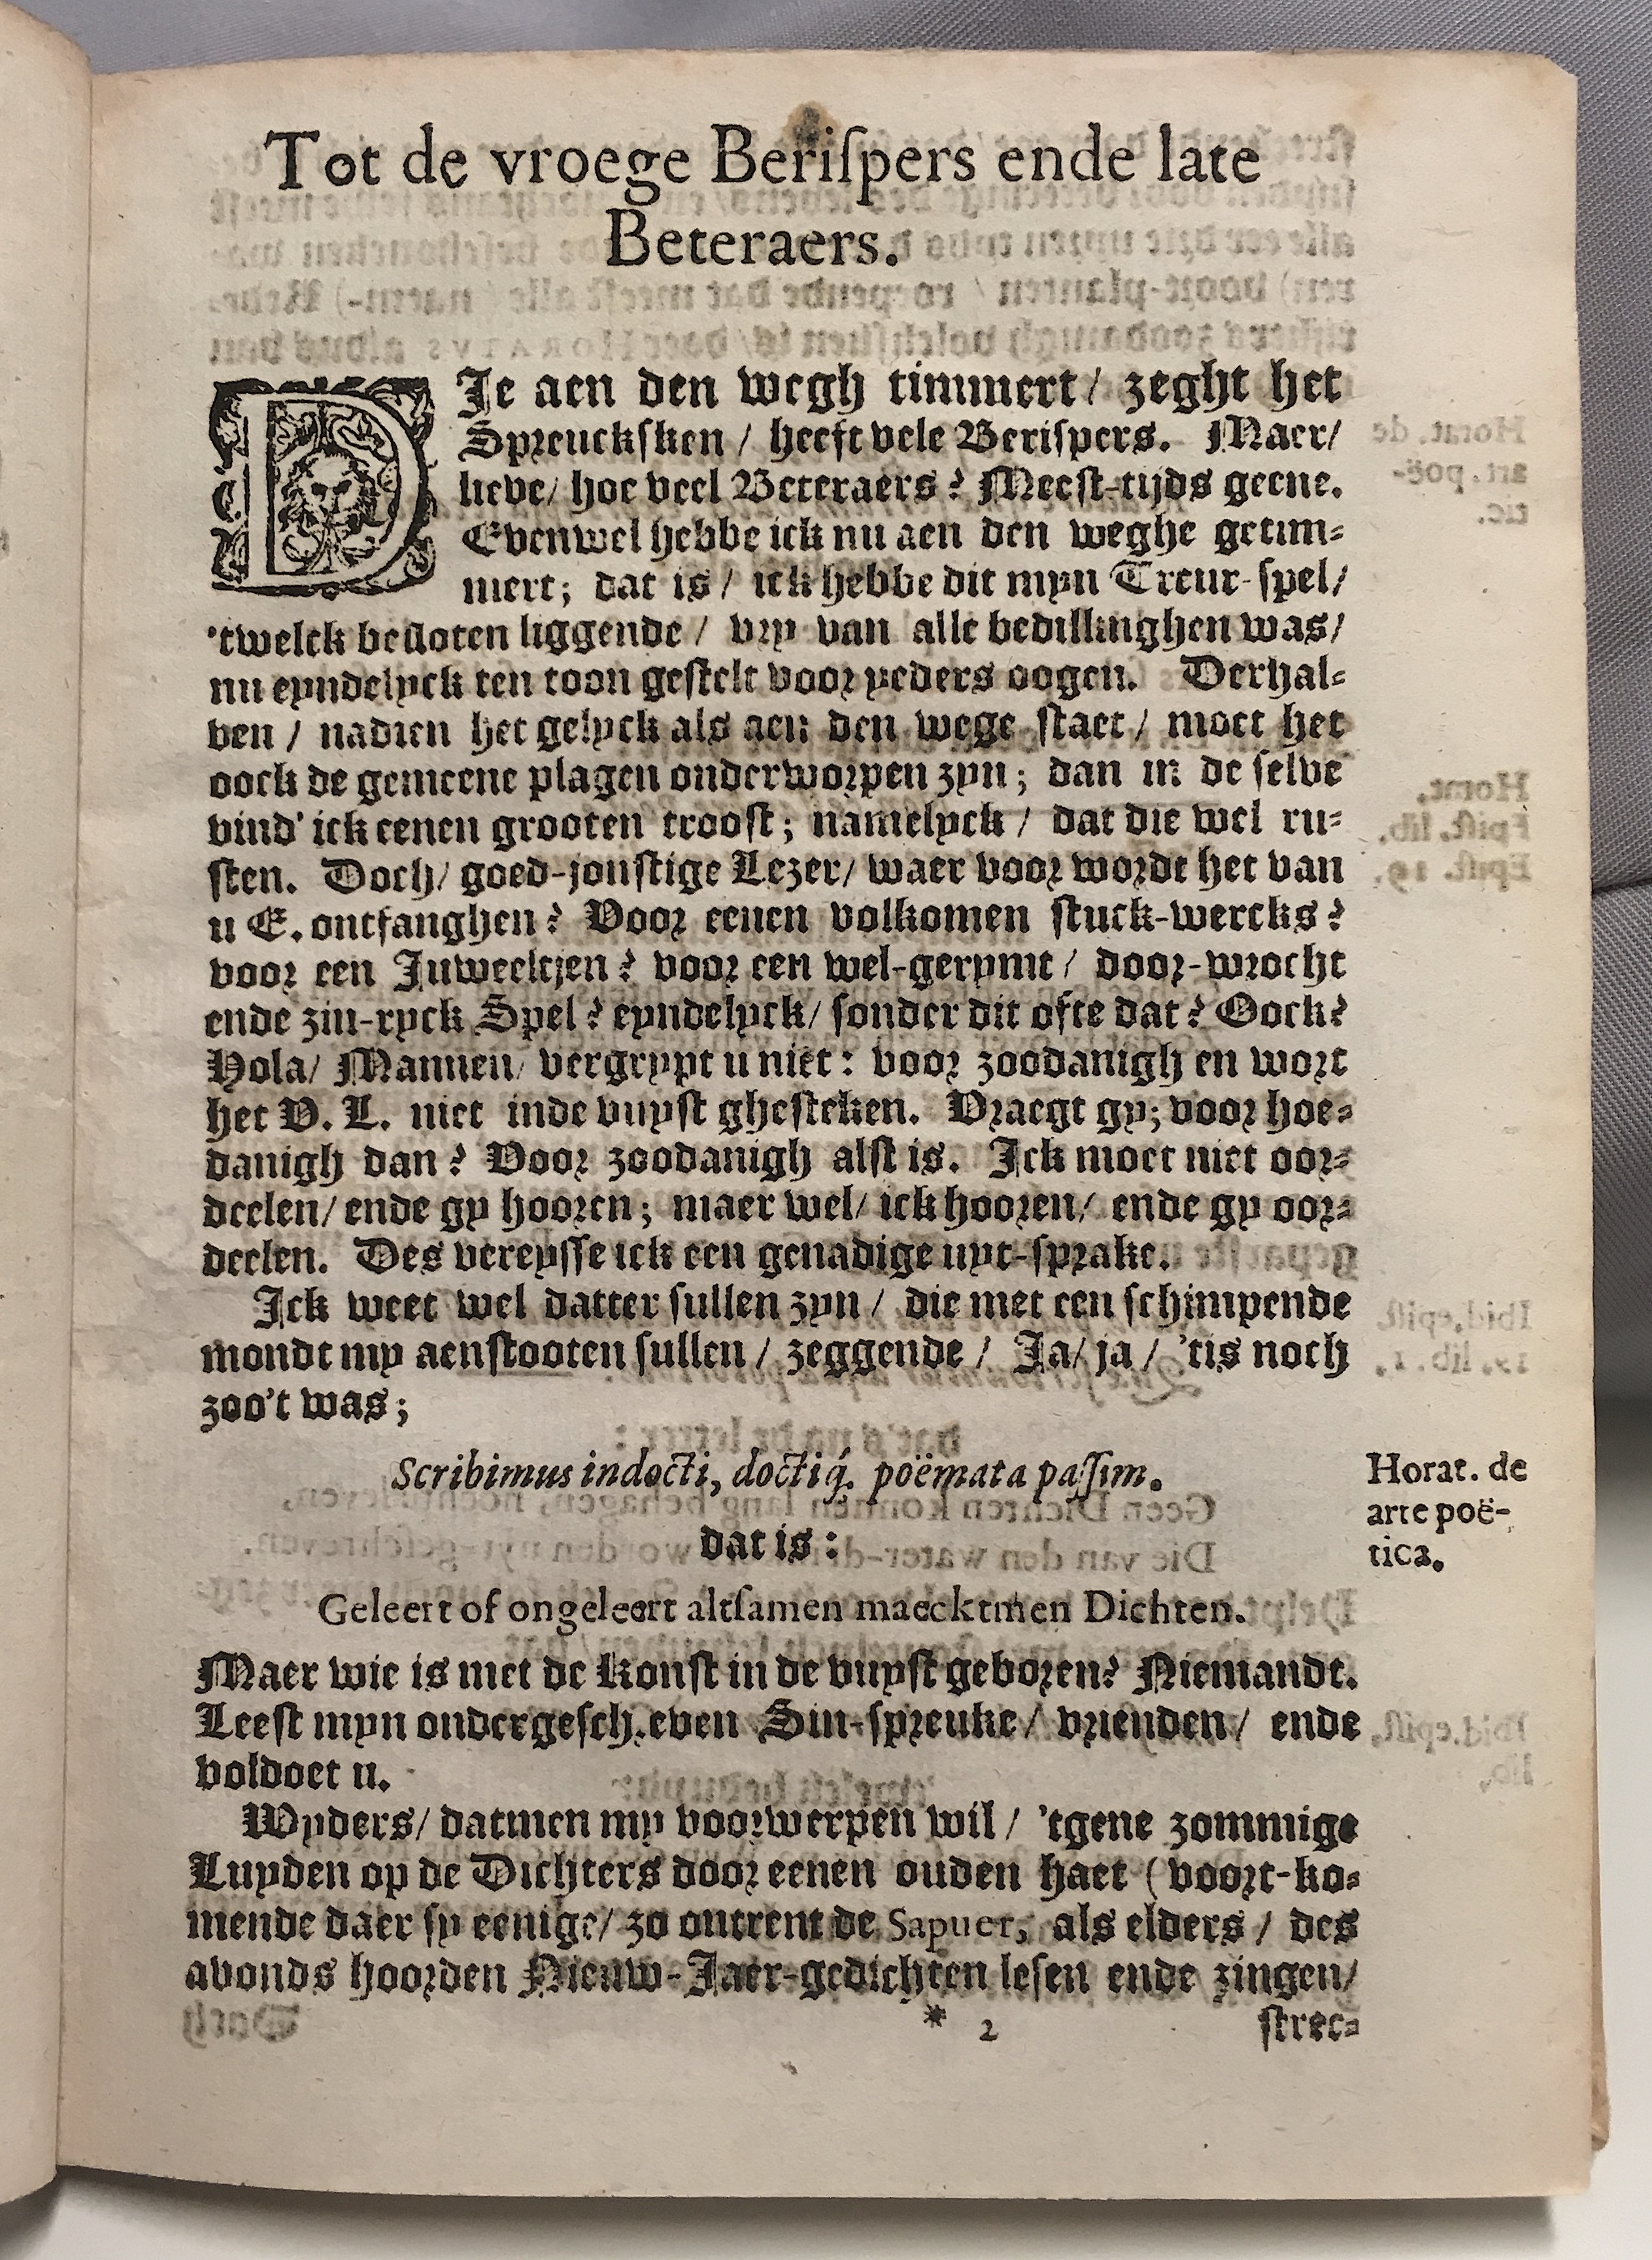 Tot de vroege Beriſpers ende late
Beteraers.
DIe aen den wegh timmert/ zeght het
Spreuckſken / heeft vele Beriſpers. Maer/
lieve/ hoe veel Beteraers? Meeſt-tijds geene.
Evenwel hebbe ick nu aen den weghe getim-
mert; dat is / ick hebbe dit myn Treur-ſpel/
'twelck beſloten liggende / vry van alle bedillinghen was/
nu eyndelyck ten toon geſtelt voor yeders oogen. Derhal-
ven / nadien het gelyck als aen den wege ſtaet / moet het
oock de gemeene plagen onderworpen zyn; dan in de ſelve
vind' ick eenen grooten trooſt; namelyck / dat die wel ru-
ſten. Doch/ goed-jonſtige Lezer/ waer voor wordt het van
u E. ontfanghen? Voor eenen volkomen ſtuck-wercks?
voor een Juweeltjen? voor een wel-gerymt / door-wrocht
ende zin-ryck Spel? eyndelyck/ ſonder dit ofte dat? Oock?
Hola/ Mannen/ vergrypt u niet: voor zoodanigh en wort
het V. L. niet inde vuyſt gheſteken. Vraegt gy; voor hoe-
danigh dan? Voor zoodanigh alſt is. Ick moet niet oor-
deelen/ ende gy hooren; maer wel/ ick hooren/ ende gy oor-
deelen. Des vereyſſe ick een genadige uyt-ſprake.
Ick weet wel datter ſullen zyn / die met een ſchimpende
mondt my aenſtooten ſullen / zeggende / Ja/ ja / 'tis noch
zoo't was;
Scribimus indocti, doctiq́. poëmata paſſim.
Horat. de
arte poë-
tica.
dat is:
Geleert of ongeleert altſamen maecktmen Dichten.
Maer wie is met de Konſt in de vuyſt geboren? Niemandt.
Leeſt myn ondergeſch.even Sin-ſpreuke / vrienden / ende
voldoet u.
Wyders/ datmen my voorwerpen wil / 'tgene zommige
Luyden op de Dichters door eenen ouden haet (voort-ko-
mende daer ſy eenige/ zo ontrent de Sapuer, als elders / des
avonds hoorden Nieuw-Jaer-gedichten leſen ende zingen/
* 2
ſtrec-